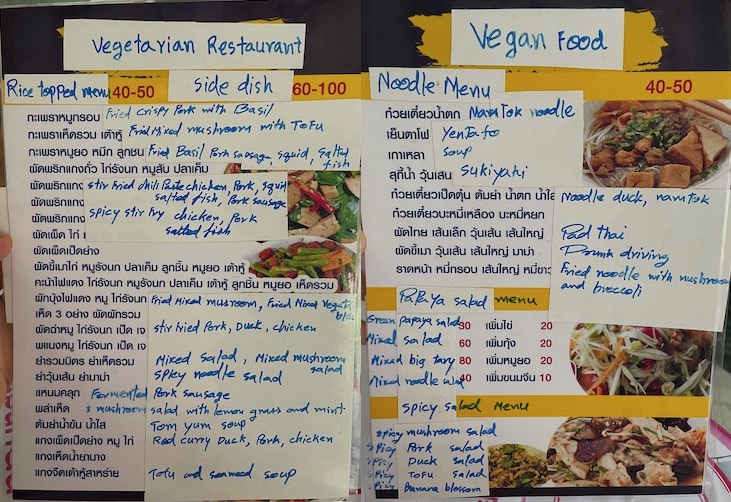 Vegetarian Restaurant
Rice topped menu 40-50 side dish 60-100
กะเพราหมูกรอบ Fried crispy Pork with Basil
กะเพราเห็ดรวม เต้าหู้ Fried Mixed mushroom with TOFU
กะเพราหมูยอ หมึก ลูกชิ้น Fried Basil Pork sausage, squid, salted fish
ผัดพริกแกงถั่ว ไก่รังนก หมูสับ ปลาเค็ม
ผัดพริกแกง stir fried chili Paste chicken, Pork, squid
ผัดพริกแกง salted fish, Pork sausage
ผัดพริกแกง spicy stir fry chicken, Pork
ผัดเผ็ด ไก่ salted fish
ผัดเผ็ดเป็ดย่าง
ผัดขี้เมาไก่ หมูรังนก ปลาเค็ม ลูกชิ้น หมูยอ เต้าหู้
คะน้าไฟแดง ไก่รังนก ปลาเค็ม เต้าหู้ ลูกชิ้น หมูยอ เห็ดรวม
ผักบุ้งไฟแดง หมู ไก่รังนก Fried Mixed musroom, Fried Mixed Vegeta
เห็ด 3 อย่าง ผัดผักรวม bles
ผัดฉ่าหมู ไก่รังนก เป็ด เจ stir fried Pork, Duck, chicken
พแนงหมู ไก่รังนก เป็ด เจ
ยำรวมมิตร ยำเห็ดรวม Mixed salad, Mixed mushroom salad
ยำวุ้นเส้น ยำมาม่า spicy noodle salad
แหนมคลุก Fermented Pork sausage
พล่าเห็ด 3 mushroom salad with lemon grass and mint
ต้มยำน้ำข้น น้ำใส Tom yum soup
แกงเผ็ดเป็ดย่าง หมู ไก่ Red curry Duck, Pork, chicken
แกงเห็ดน้ำยานาง
แกงจืดเต้าหู้สาหร่าย Tofu and seaweed soup
Vegan Food
Noodle Menu 40-50
ก๋วยเตี๋ยวน้ำตก Namtok noodle
เย็นตาโฟ Yentafo
เกาเหลา soup
สุกี้น้ำ วุ้นเส้น Sukiyaki
ก๋วยเตี๋ยวเป็ดตุ๋น ต้มยำ น้ำตก น้ำใส noodle duck, namtok
ก๋วยเตี๋ยวบะหมี่เหลือง บะหมี่หยก
ผัดไทย เส้นเล็ก วุ้นเส้น เส้นใหญ่ Pad thai
ผัดขี้เมา วุ้นเส้น เส้นใหญ่ มาม่า Drunk driving
ราดหน้า หมี่กรอบ เส้นใหญ่ หมี่ขาว Fried noodle with mushroom
and broccoli
Papaya salad menu
Green papaya salad 30 เพิ่มไข่ 20
Mixed salad 60 เพิ่มกุ้ง 20
Mixed big tary 80 เพิ่มหมูยอ 20
Mixed noodle salad 40 เพิ่มขนมจีน 10
Spicy salad Menu
spicy mushroom salad
spicy Pork salad
spicy Duck salad
spicy TOFU salad
spicy Banana blossom